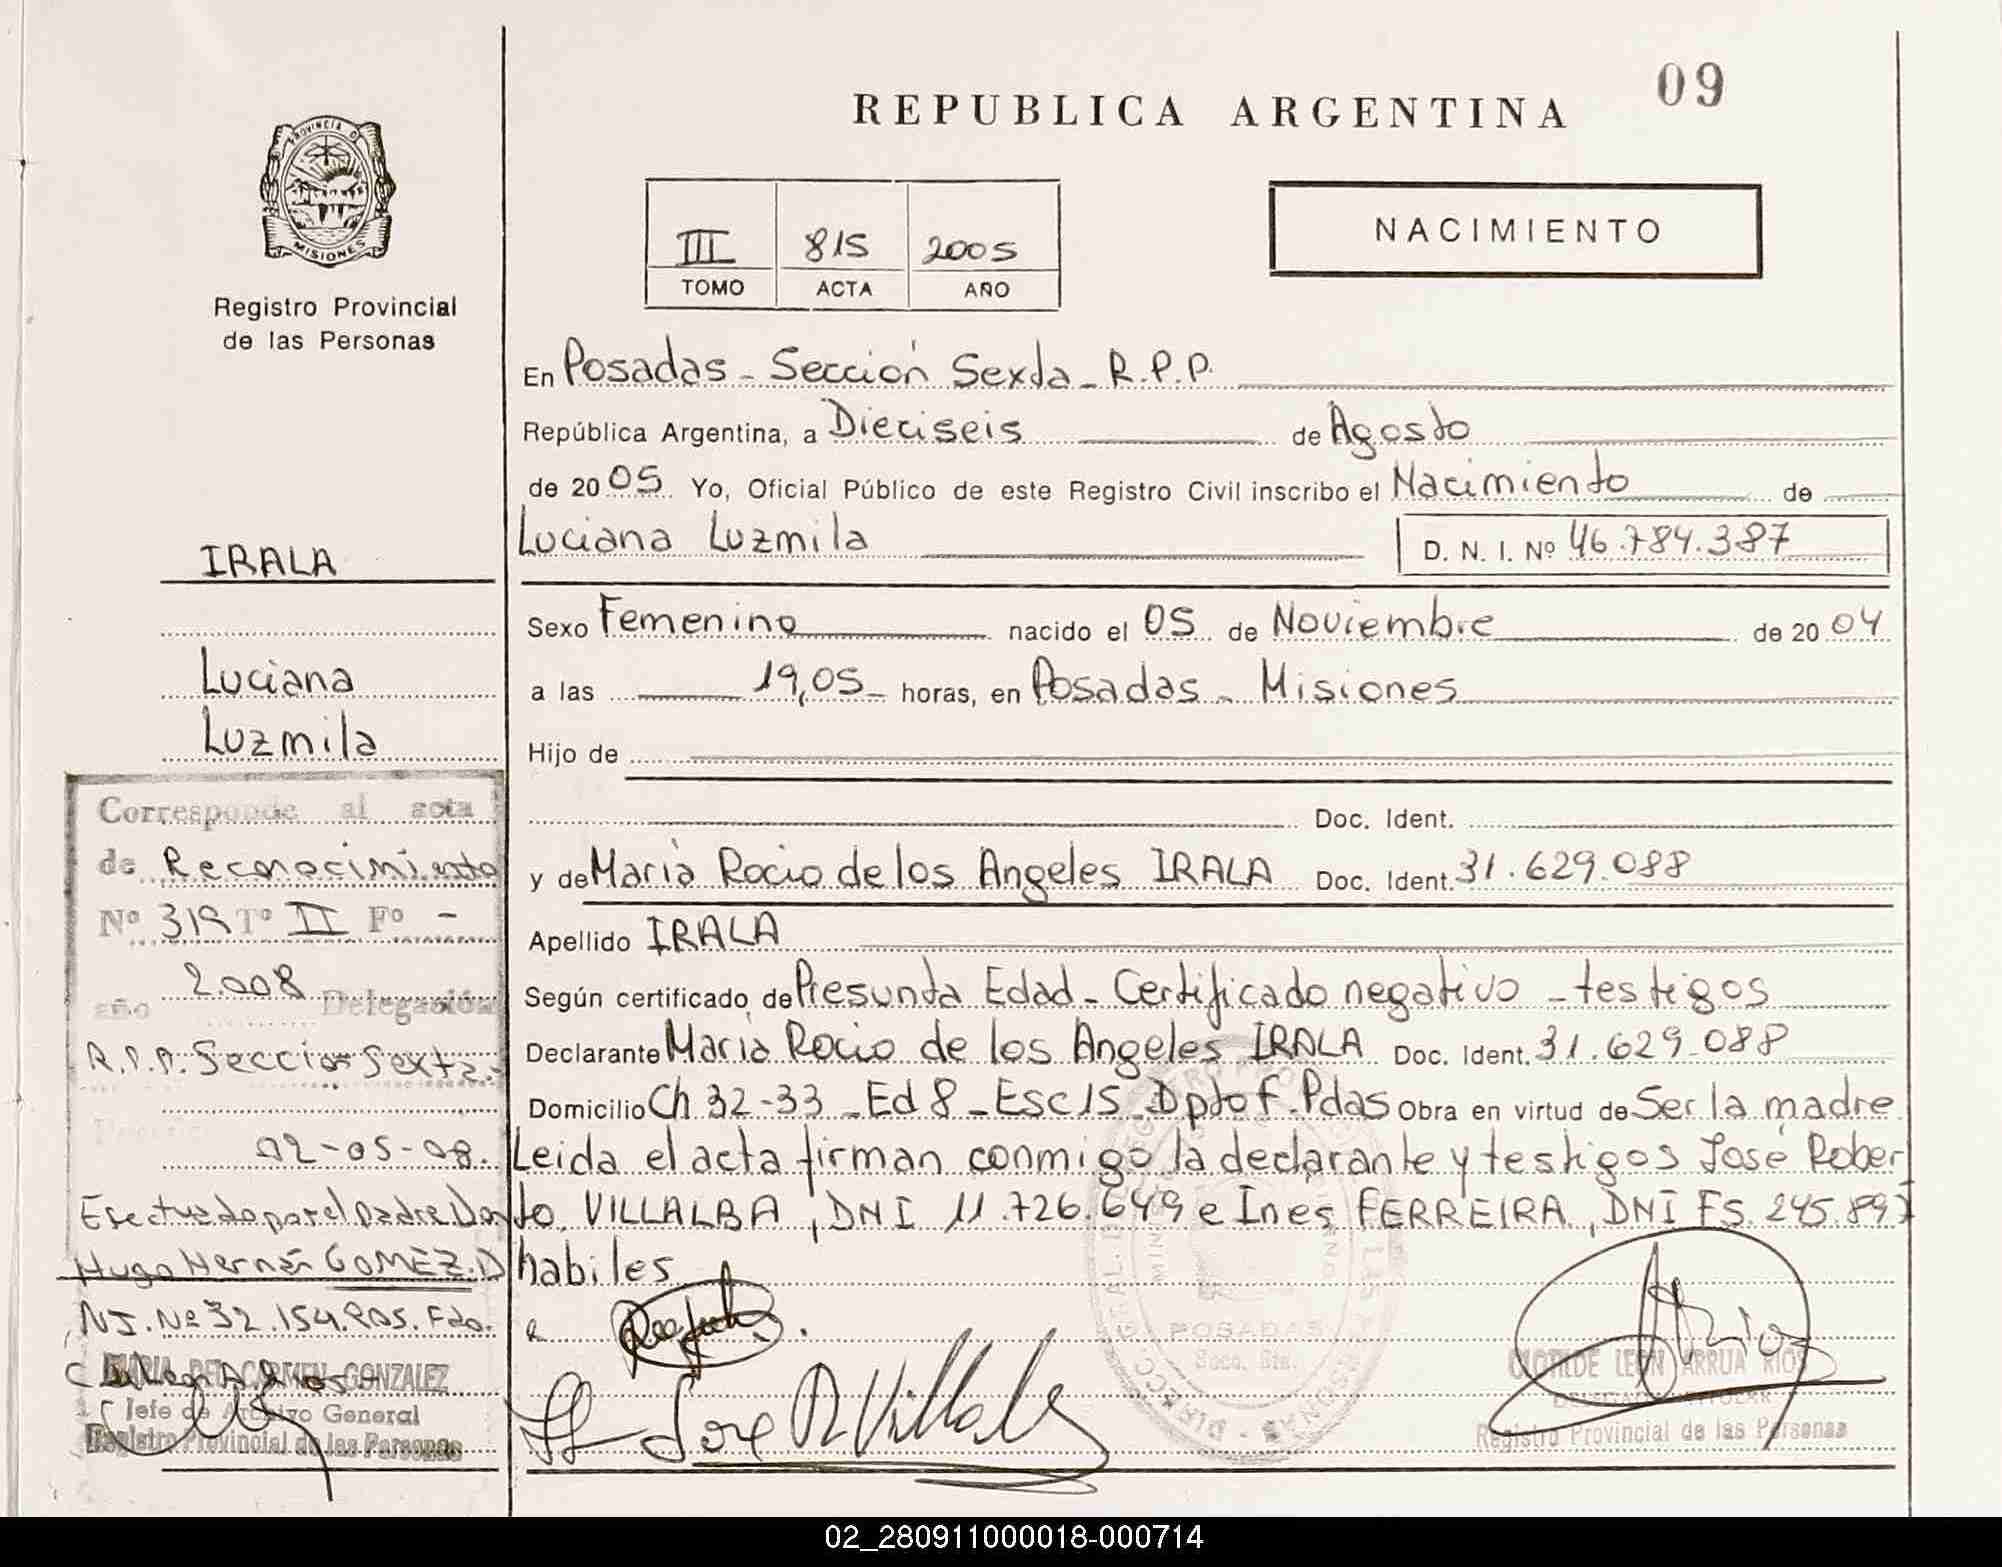 09
REPUBLICA ARGENTINA
PROVINCIA DE
MISIONES
Registro Provincial
de las Personas
III 815 2005
TOMO ACTA AÑO
NACIMIENTO
En Posadas - Sección Sexta - R.P.P.
República Argentina, a Dieciseis de Agosto
de 2005 Yo, Oficial Público de este Registro Civil inscribo el Nacimiento de
Luciana Luzmila D. N. I. Nº 46.784.387
Sexo Femenino nacido el 05 de Noviembre de 2004
a las 19,05 horas, en Posadas - Misiones
Hijo de
Doc. Ident.
y de Maria Rocio de los Angeles IRALA Doc. Ident. 31.629.088
Apellido IRALA
Según certificado de Presunta Edad - Certificado negativo - testigos
Declarante Maria Rocio de los Angeles IRALA Doc. Ident. 31.629.088
Domicilio Ch 32-33 - Ed 8 - Esc 15 - Dpto F. Pdas Obra en virtud de Ser la madre
Leida el acta firman conmigo la declarante y testigos José Rober
to VILLALBA, DNI 11.726.649 e Ines FERREIRA, DNI F5.245.897
habiles
IRALA
Luciana
Luzmila
Corresponde al acta
de Reconocimiento
Nº 319 Tº II Fº -
año 2.008 Delegación
R.P.P. Seccion Sexta.-
02-05-08.
Efectuado por el padre Don
Hugo Hernán GOMEZ. D
NI. Nº 32.154.205. Fdo.
MARIA DEL CARMEN GONZALEZ
Jefe de Archivo General
Registro Provincial de las Personas
José R Villalba
POSADAS
Secc. 6ta.
CLOTILDE LEON ARRUA RIOS
DELEGADA TITULAR
Registro Provincial de las Personas
02_280911000018-000714